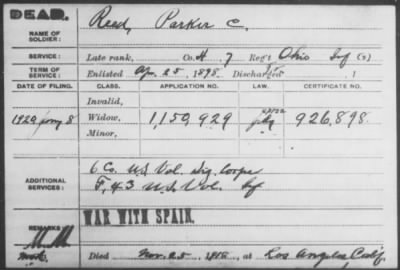 DEAD.
NAME OF SOLDIER: Reed, Parker C.
SERVICE: Late rank, Co. H, 7 Reg't Ohio Inf (s)
TERM OF SERVICE: Enlisted Apr. 25, 1898, Discharged , 1
DATE OF FILING. CLASS. APPLICATION NO. LAW. CERTIFICATE NO.
Invalid,
1920 8 Widow, 1,150,929 926,898.
Minor,
ADDITIONAL SERVICES: 6 Co. U.S. Vol. Sig. Corps
F, 43 U.S. Vol. Inf
WAR WITH SPAIN.
REMARKS
Died Nov. 25, 1918, at Los Angeles, Calif.